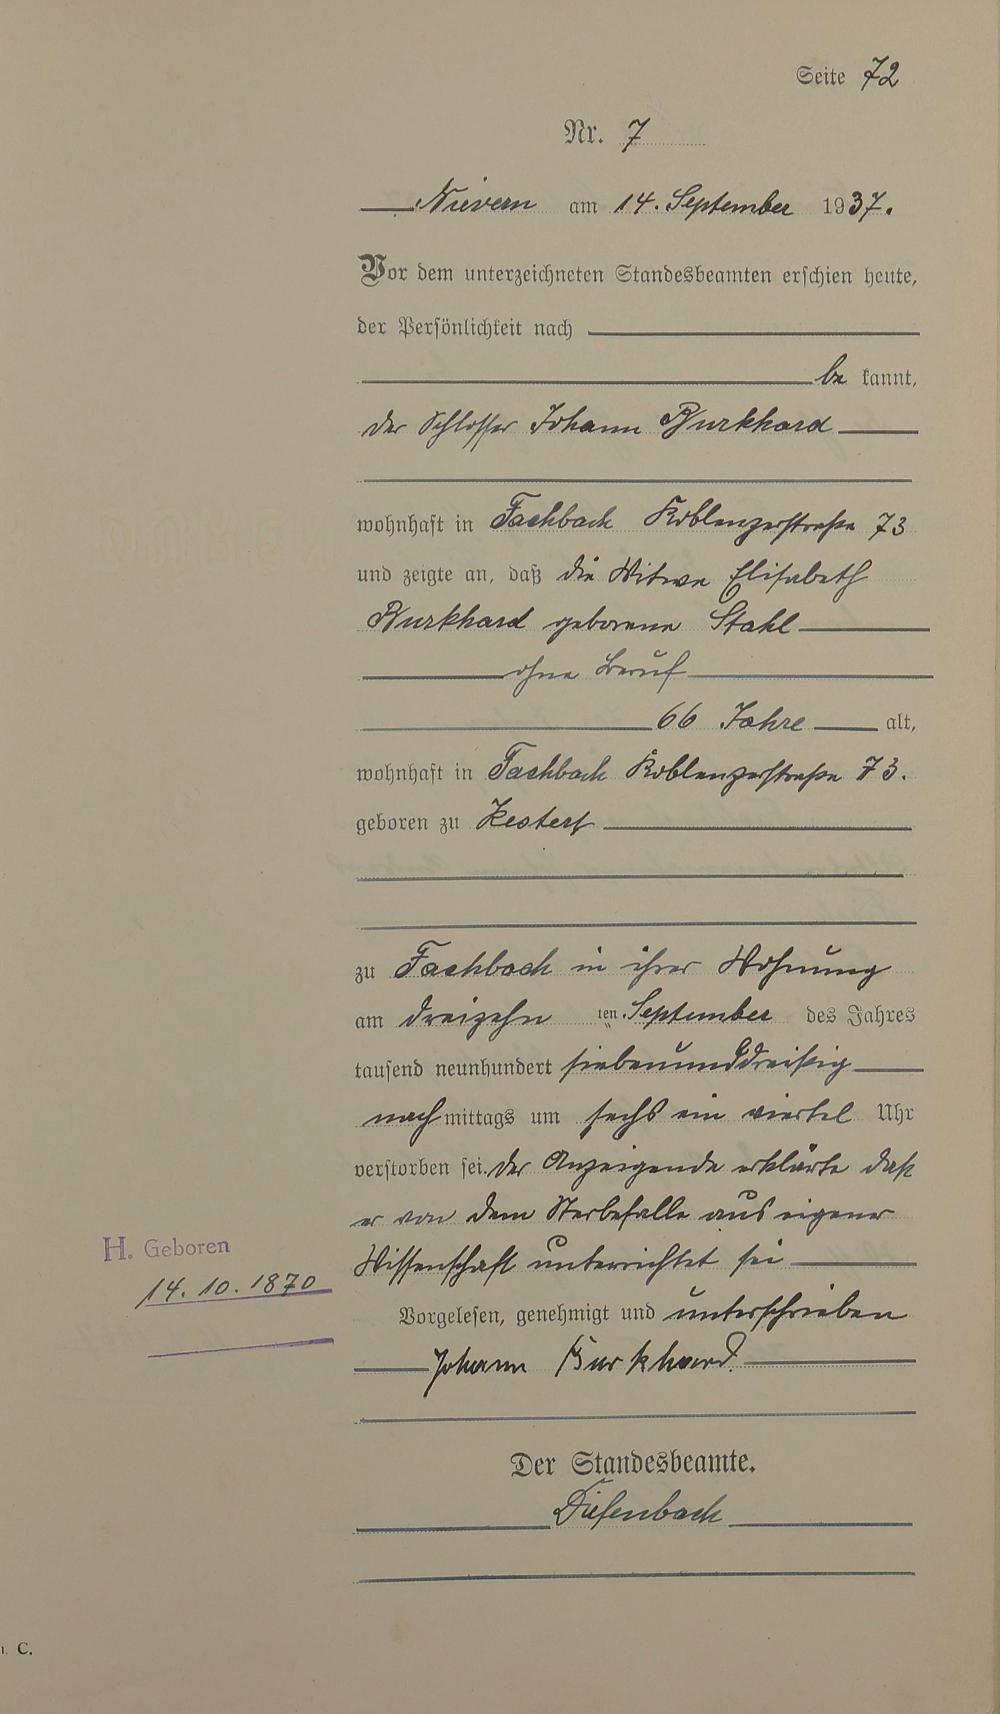 Seite 72
Nr. 7
Nievern am 14. September 1937.
Vor dem unterzeichneten Standesbeamten erschien heute,
der Persönlichkeit nach
be kannt,
der Schlosser Johann Burkhard
wohnhaft in Fachbach Koblenzerstraße 73
und zeigte an, daß die Witwe Elisabeth
Burkhard geborene Stahl
ohne Beruf
66 Jahre alt,
wohnhaft in Fachbach Koblenzerstraße 73.
geboren zu Kestert
zu Fachbach in ihrer Wohnung
am dreizehn ten September des Jahres
tausend neunhundert siebenunddreißig
nachmittags um sechs ein viertel Uhr
verstorben sei. Der Anzeigende erklärte daß
er von dem Sterbefalle aus eigener
Wissenschaft unterrichtet sei
H. Geboren
14.10.1870
Vorgelesen, genehmigt und unterschrieben
Johann Burkhard.
Der Standesbeamte.
Diefenbach
C.